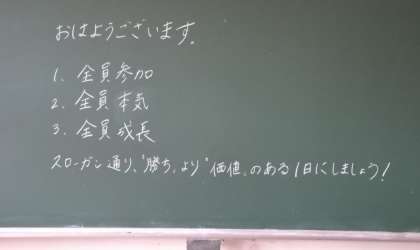 おはようございます。
1. 全員参加
2. 全員本気
3. 全員成長
スローガン通り、"勝ち"より"価値"のある1日にしましょう!